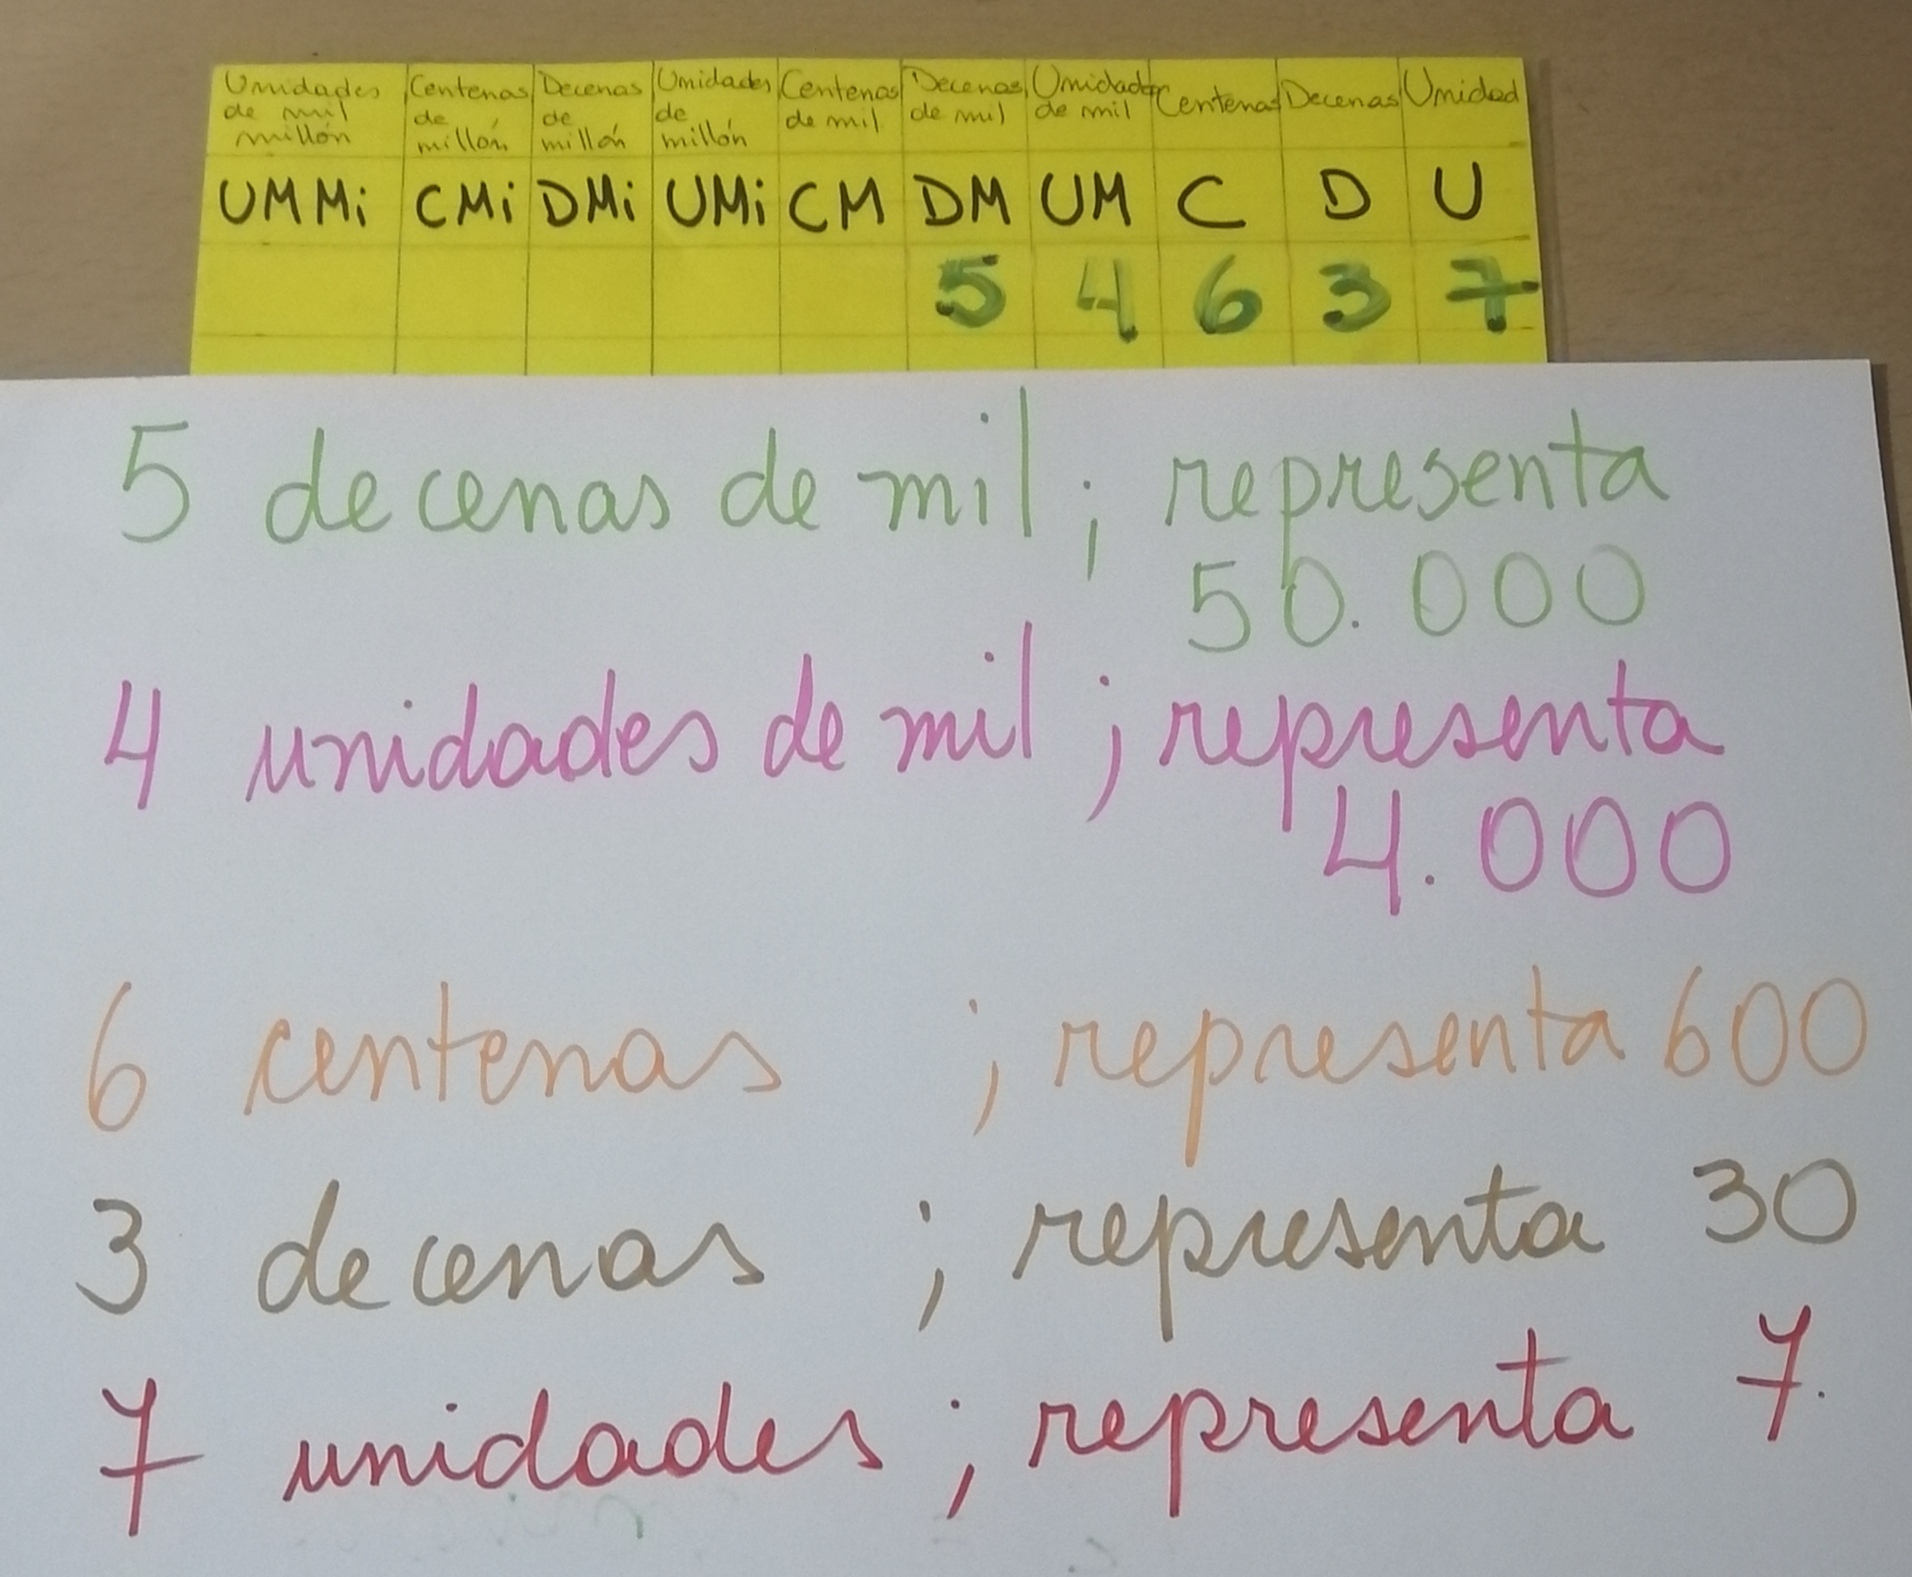 Unidades de mil millón Centenas de millón Decenas de millón Unidades de millón Centenas de mil Decenas de mil Unidades de mil Centenas Decenas Unidad
UMMi CMi DMi UMi CM DM UM C D U
5 4 6 3 7
5 decenas de mil ; representa
50.000
4 unidades de mil ; representa
4.000
6 centenas ; representa 600
3 decenas ; representa 30
7 unidades ; representa 7.